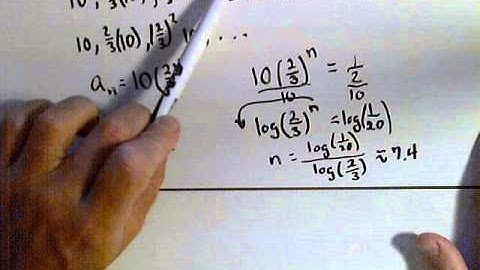 10, 2/3(10),
10, 2/3(10), (2/3)² 10, ...
aₙ = 10(2/3)
10(2/3)ⁿ/10 = 1/2/10
log(2/3)ⁿ = log(1/20)
n = log(1/20)/log(2/3) ≈ 7.4